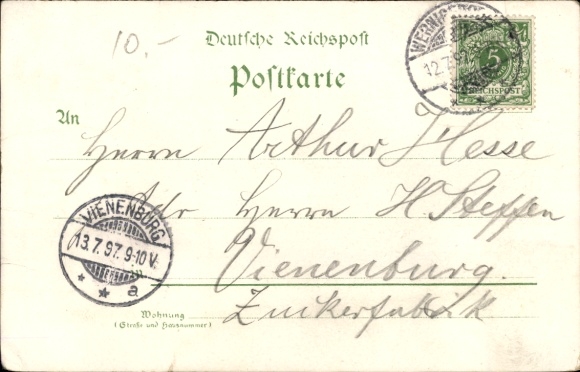 10.-
Deutsche Reichspost
Postkarte
12.7.97
5
REICHSPOST
An
Herrn Arthur Hesse
Adr. Herrn H Steffen
VIENENBURG
13.7.97. 9-10 V.
a
in
Vienenburg.
Zuckerfabrik
Wohnung
(Straße und Hausnummer)